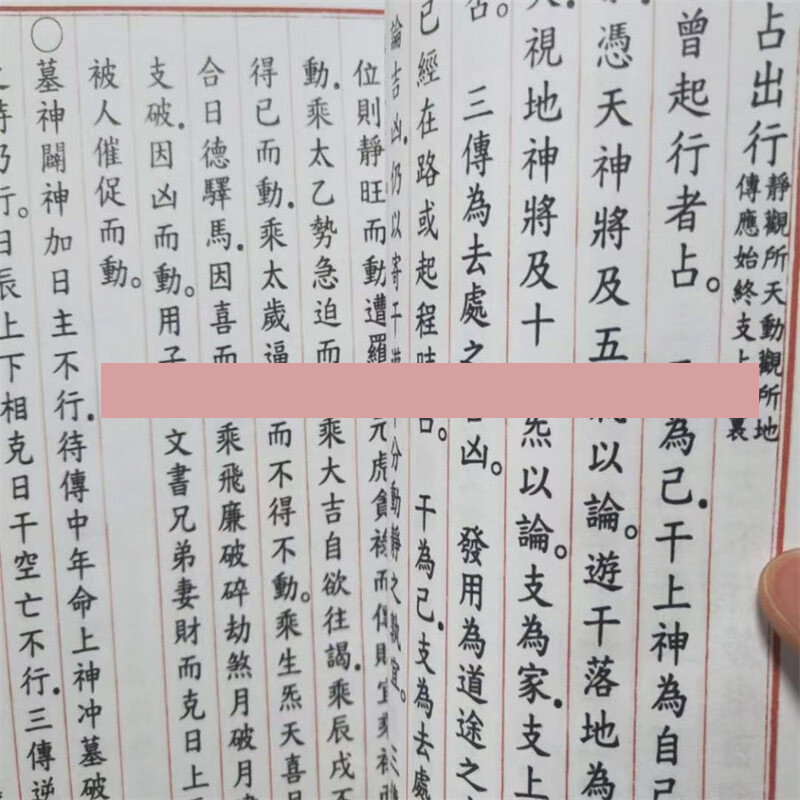 占出行
靜觀所天動觀所地
傳應始終支上裏
曾起行者占。 為己.干上神為自己
憑天神將及五以論。遊干落地為
視地神將及十炁以論。支為家.支上
否。 三傳為去處之凶。 發用為道途之
已經在路或起程 干為己.支為去處
論吉凶.仍以寄干分動靜之宜。
位則靜旺而動遭羅元虎貪而
動.乘太乙勢急迫而乘大吉自欲往謁.乘辰戌不
得已而動.乘太歲逼而不得不動。乘生炁天喜
合日德驛馬.因喜而乘飛廉破碎劫煞月破月
支破.因凶而動。用子文書兄弟妻財而克日上
被人催促而動。
○
墓神關神加日主不行.待傳中年命上神冲墓破
行。日辰上下相克日干空亡不行.三傳逆